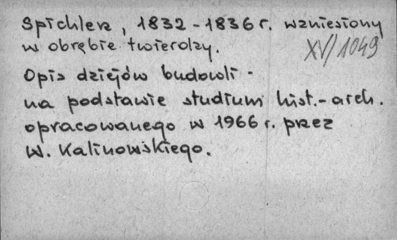 Spichlerz, 1832-1836 r. wzniesiony
w obrębie twierdzy.
XV/1049
Opis dziejów budowli -
na podstawie studium hist.-arch.
opracowanego w 1966 r. przez
W. Kalinowskiego.